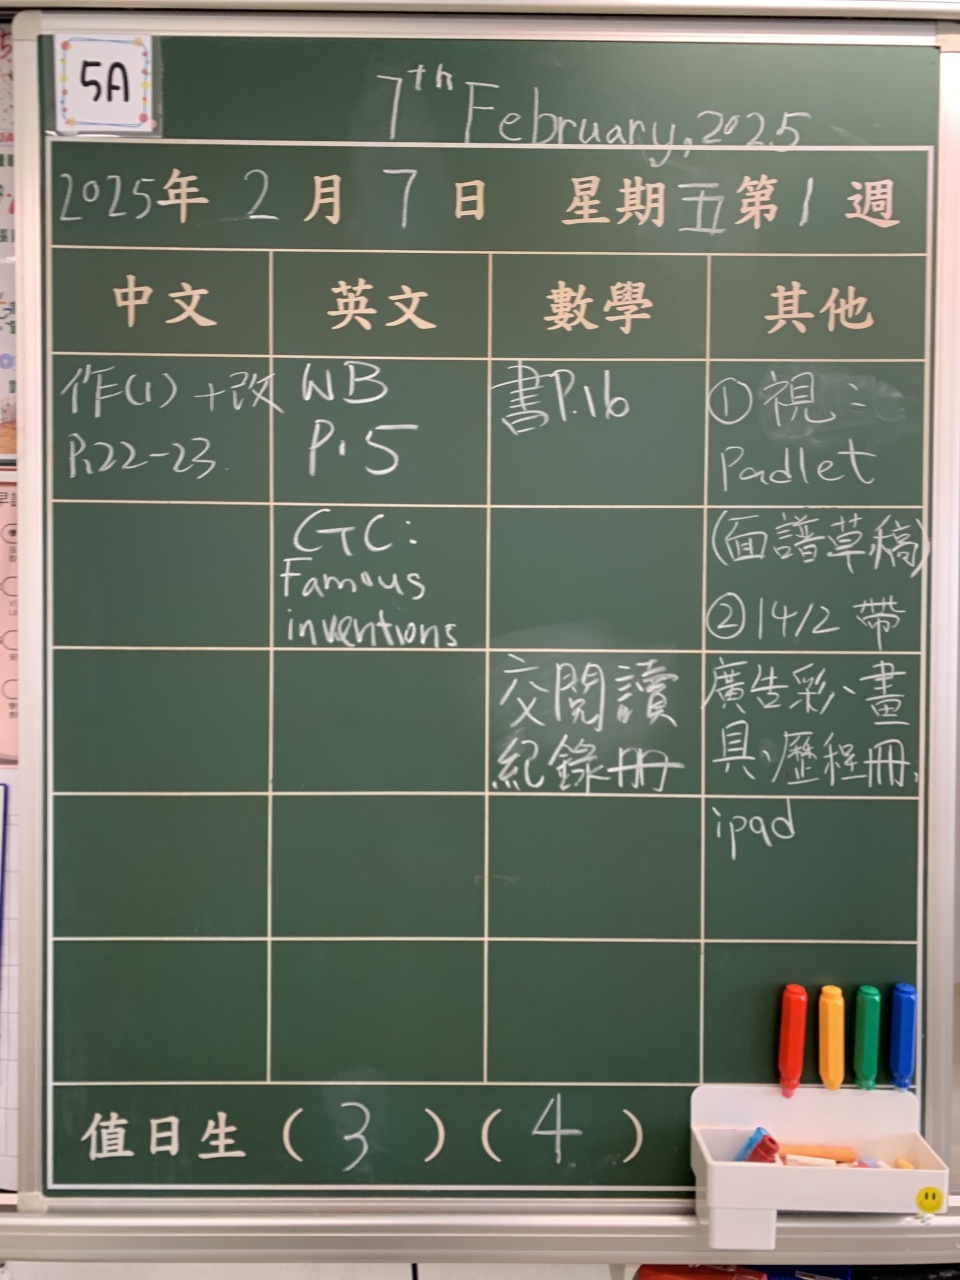 5A
7th February, 2025
2025年 2 月 7 日 星期五第 1 週
中文 英文 數學 其他
作(1)+改
P.22-23
WB
P.5
書P.16
①視：
Padlet
GTC:
Famous
inventions
(面譜草稿)
②14/2 帶
交閱讀
紀錄冊
廣告彩、畫
具、歷程冊、
ipad
值日生 ( 3 ) ( 4 )